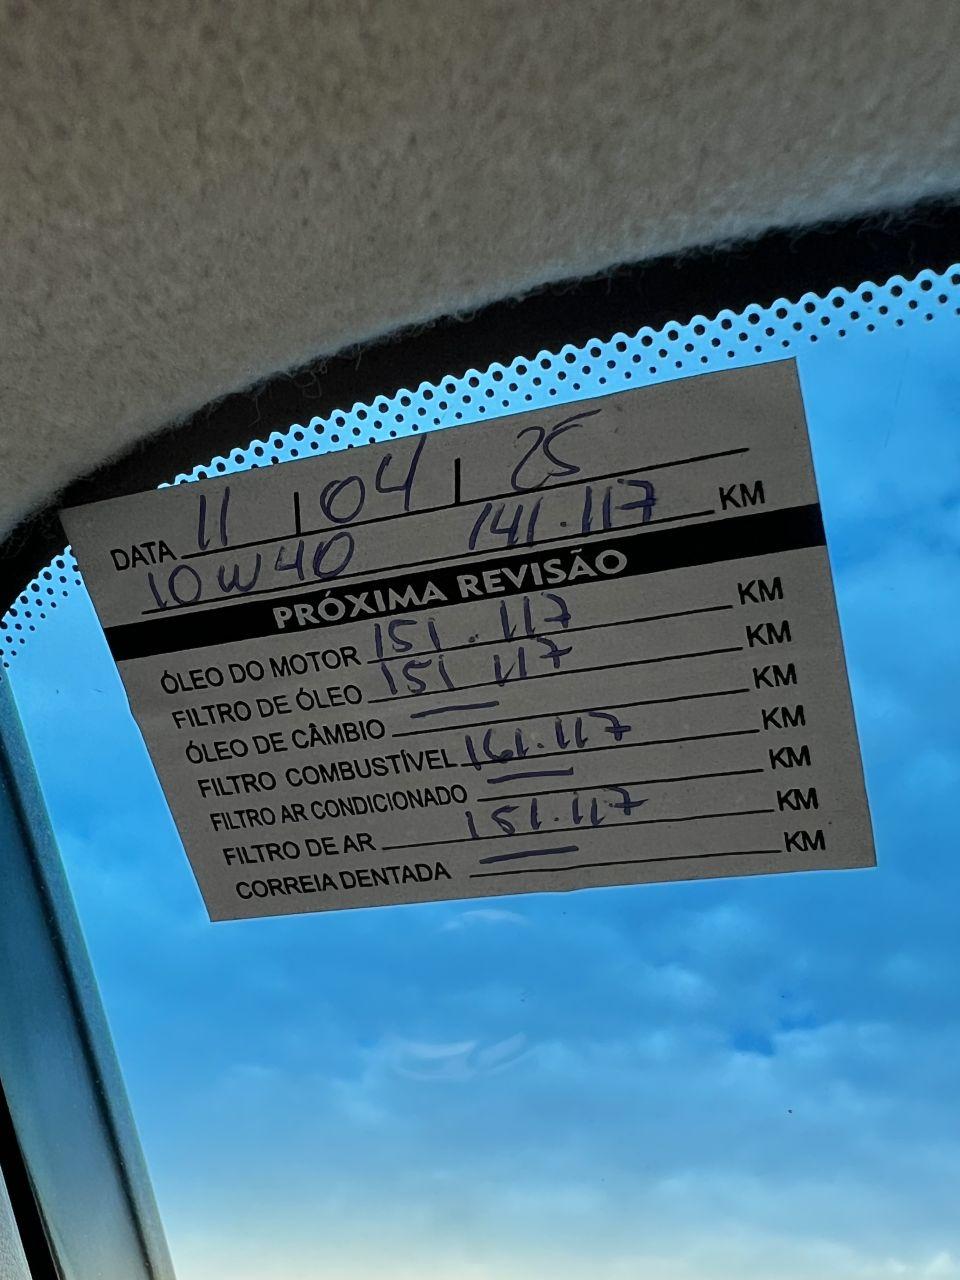 DATA 11 | 04 | 25
10W40 141.117 KM
PRÓXIMA REVISÃO
ÓLEO DO MOTOR 151.117 KM
FILTRO DE ÓLEO 151 117 KM
ÓLEO DE CÂMBIO — KM
FILTRO COMBUSTÍVEL 161.117 KM
FILTRO AR CONDICIONADO — KM
FILTRO DE AR 151.117 KM
CORREIA DENTADA — KM